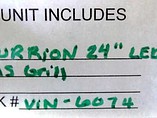 UNIT INCLUDES
URRION 24" LED
AS Grill
K# VIN-6074